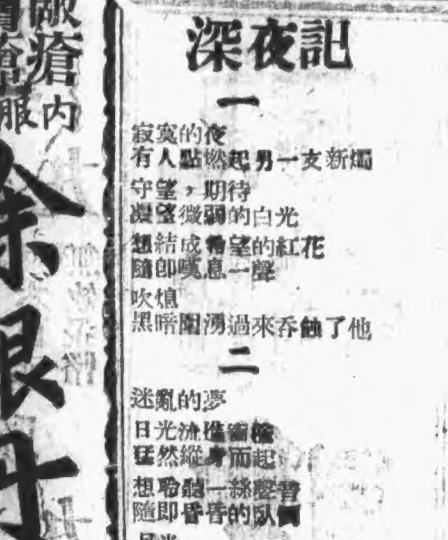 深夜記
一
寂寞的夜
有人點燃起另一支新燭
守望，期待
凝望微弱的白光
想結成希望的紅花
隨即嘆息一聲
吹熄
黑暗圍湧過來吞蝕了他
二
迷亂的夢
日光流進窗
猛然縱身而起
想聆聽一絲聲音
隨即昏昏的臥
日光
瘡
服內